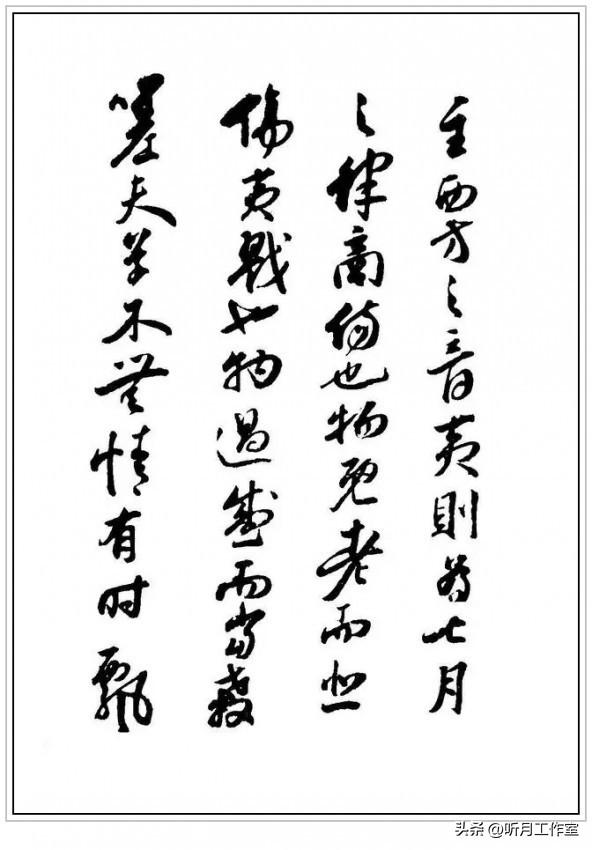 主西方之音夷則為七月
之律商傷也物既老而悲
傷夷戮也物過盛而當殺
嗟夫草木無情有时飄
头条 @听月工作室